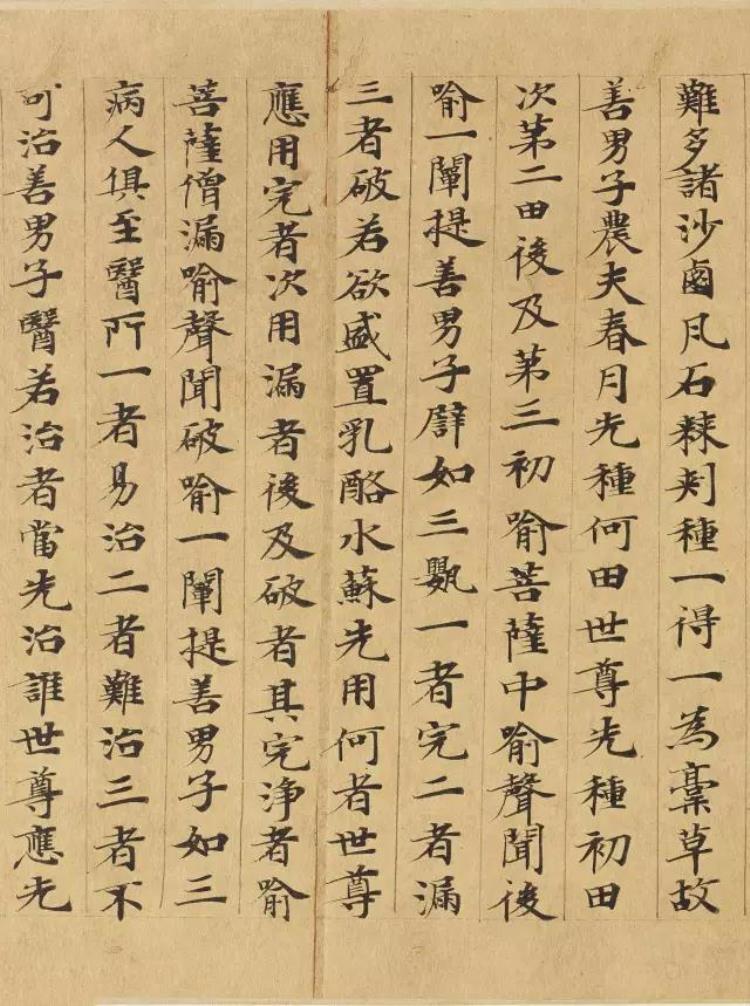 難多諸沙鹵瓦石棘刾種一得一為稾草故
善男子農夫春月先種何田世尊先種初田
次第二田後及第三初喻菩薩中喻聲聞後
喻一闡提善男子譬如三甖一者完二者漏
三者破若欲盛置乳酪水蘇先用何者世尊
應用完者次用漏者後及破者其完淨者喻
菩薩僧漏喻聲聞破喻一闡提善男子如三
病人俱至醫所一者易治二者難治三者不
可治善男子醫若治者當先治誰世尊應先